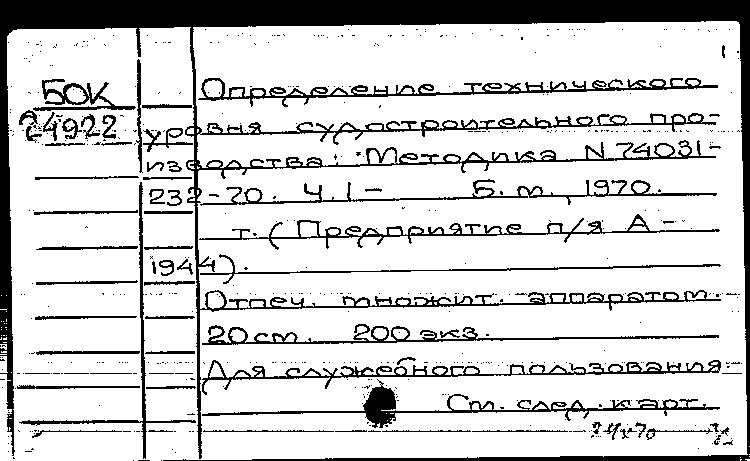 1
БОК
24922
Определение технического
уровня судостроительного про-
изводства: Методика N 74031-
232-70. Ч.1- Б.м., 1970.
т. (Предприятие п/я А-
1944).
Отпеч. множит. аппаратом.
20 см. 200 экз.
Для служебного пользования
См. след. карт.